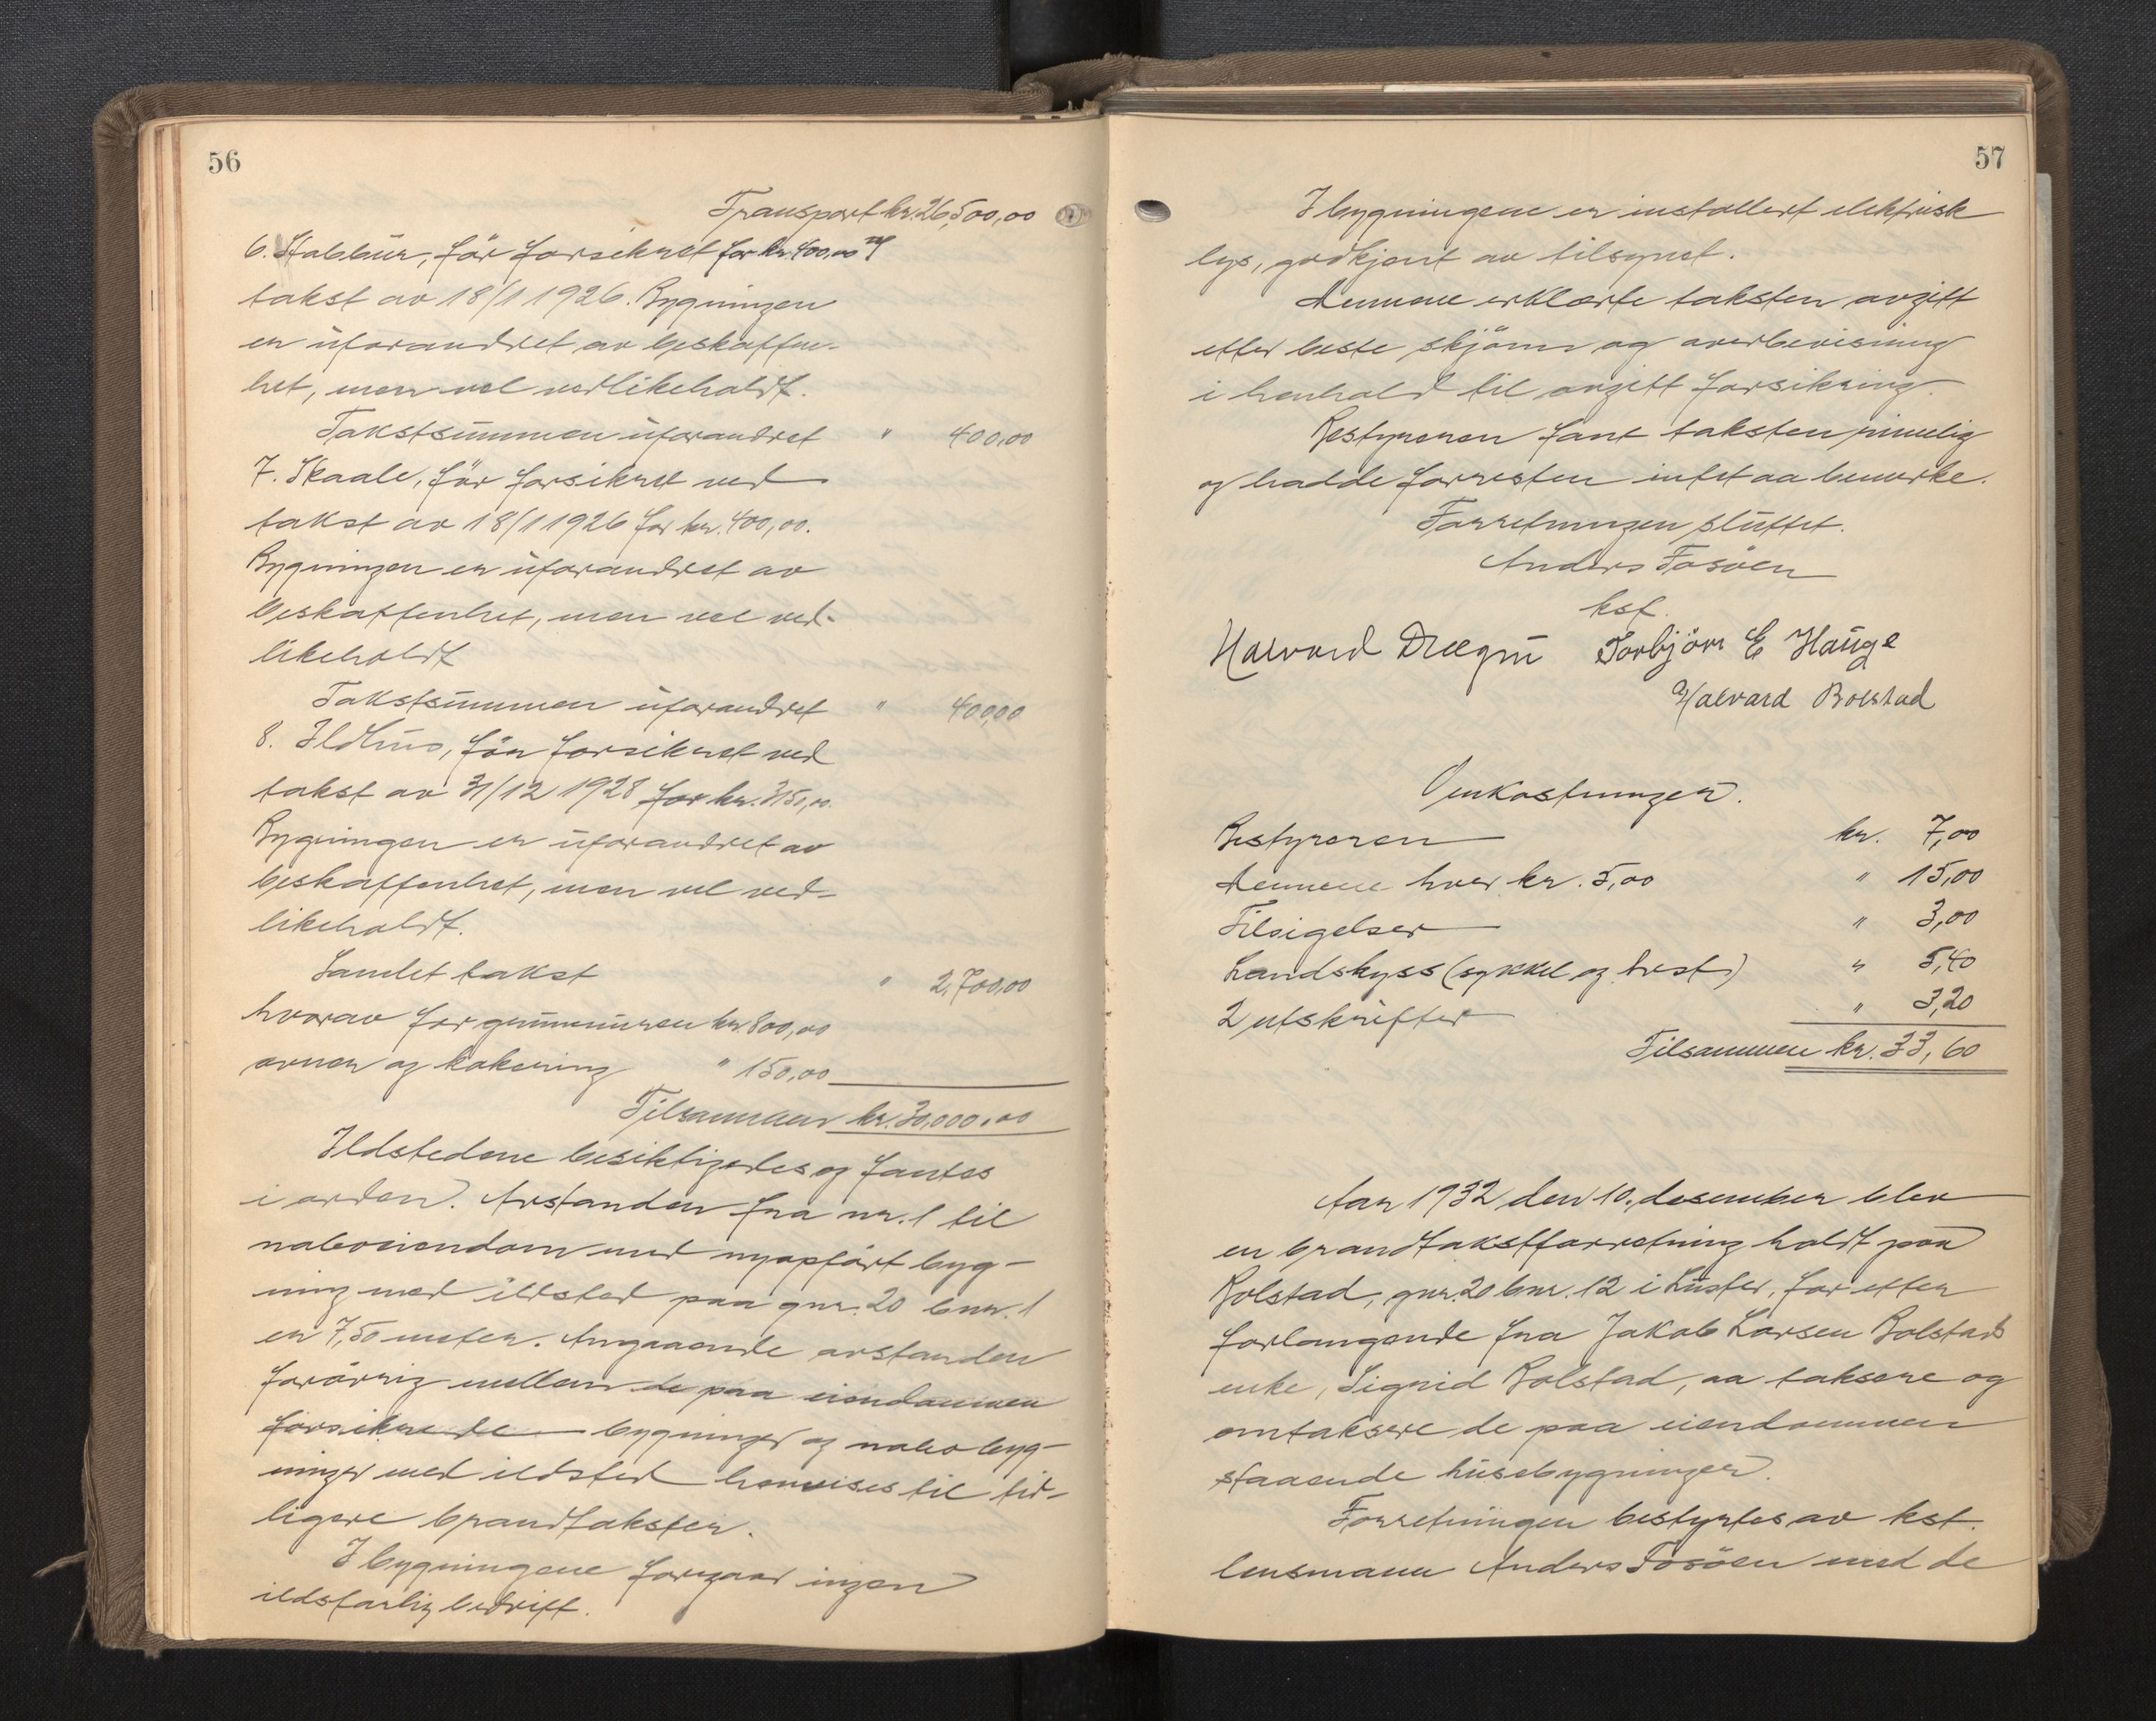 56
Transport kr. 26,500,00
6. Stabbur, før forsikret for kr. 400,00 ved
takst av 18/1 1926. Bygningen
er uforandret av beskaffen-
het, men vel vedlikeholdt.
Takstsummen uforandret " 400,00
7. Skaale, før forsikret ved
takst av 18/1 1926 for kr. 400,00.
Bygningen er uforandret av
beskaffenhet, men vel ved-
likeholdt
Takstsummen uforandret " 400,00
8. Ildhus, før forsikret ved
takst av 31/12 1928 for kr. 3150,00.
Bygningen er uforandret av
beskaffenhet, men vel ved-
likeholdt.
Samlet takst " 2,700,00
hvorav for grunnmuren kr. 800,00
ovner og kakering " 150,00
Tilsammen kr. 30,000,00
Ildstedene besiktigedes og fantes
i orden. Avstanden fra nr. 1 til
naboeiendom med nyopført byg-
ning med ildsted paa gnr. 20 bnr. 1
er 7,50 meter. Angaaende avstanden
forøvrig mellem de paa eiendommen
forsikrede bygninger og nabobyg-
ninger med ildsted henvises til tid-
ligere brandtakster.
I bygningene foregaar ingen
ildsfarlig bedrift.
57
I bygningene er installert elektrisk
lys, godkjent av tilsynet.
Mennene erklærte taksten avgitt
efter beste skjønn og overbevisning
i henhold til avgitt forsikring.
Bestyreren fant taksten rimelig
og hadde forresten intet aa bemerke.
Forretningen sluttet.
Anders Fosøen
kst.
Halvard Dregni Torbjörn E Hauge
Halvard Bolstad
Omkostninger.
Bestyreren kr. 7,00
Mennene hver kr. 5,00 " 15,00
Tilsigelser " 3,00
Landskyss (sykkel og hest) " 5,40
2 utskrifter " 3,20
Tilsammen kr. 33,60
Aar 1932 den 10. desember blev
en brandtakstforretning holdt paa
Bolstad, gnr. 20 bnr. 12 i Luster, for efter
forlangende fra Jakob Larsen Bolstads
enke, Sigrid Bolstad, aa taksere og
omtaksere de paa eiendommen
staaende husebygninger.
Forretningen bestyrtes av kst.
lensmann Anders Fosøen med de